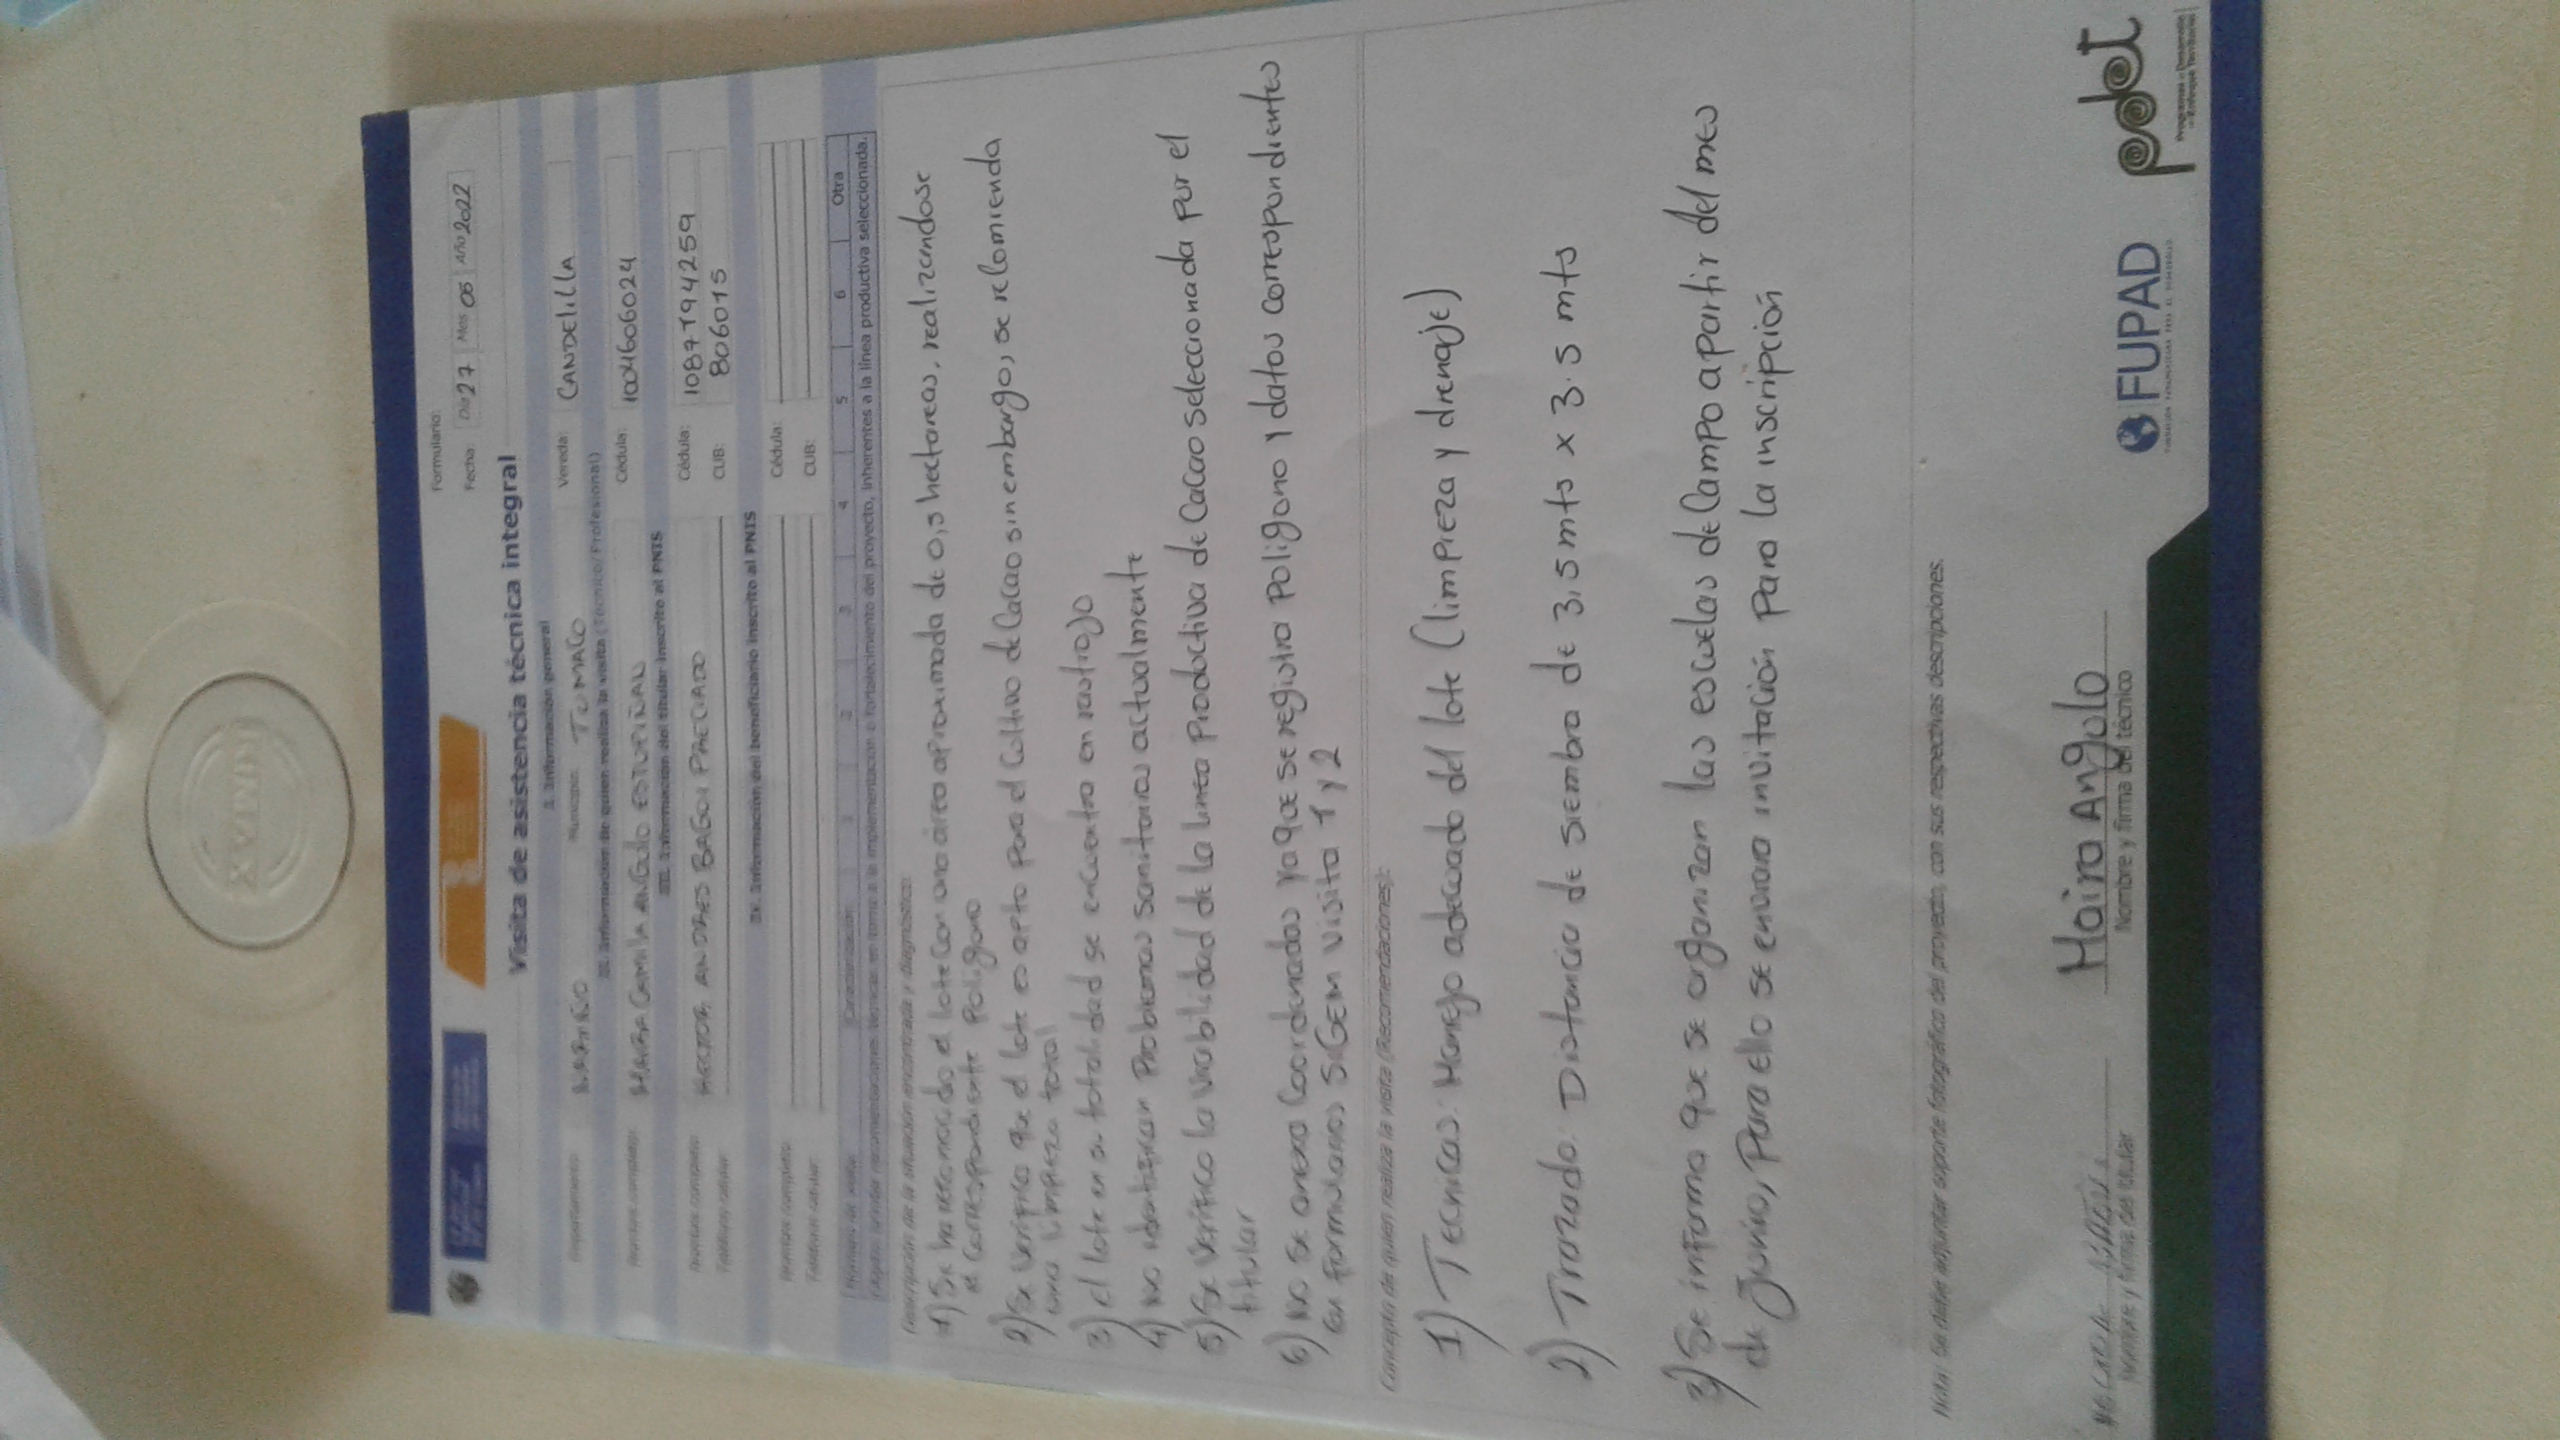 Formulario:
Fecha: Día 27 Mes 05 Año 2022
Visita de asistencia técnica integral
I. Información general
Departamento: NARIÑO Municipio: TUMACO Vereda: CANDELILLA
II. Información de quien realiza la visita (Técnico/Profesional)
Nombre completo: MAIRA CAMILA ANGULO ESTUPIÑAN Cédula: 1004606024
III. Información del titular inscrito al PNIS
Nombre completo: HECTOR ANDRES BAGUI PRECIADO Cédula: 1087794259
Teléfono celular: CUB: 806015
IV. Información del beneficiario inscrito al PNIS
Nombre completo: Cédula:
Teléfono celular: CUB:
Número de visita: Caracterización 1 2 3 4 5 6 Otra
técnicas en torno a la implementación o fortalecimiento del proyecto, inherentes a la línea productiva seleccionada.
Descripción de la situación encontrada y diagnóstico:
1) Se ha reconocido el lote con una área aproximada de 0,5 hectareas, realizandose
el correspondiente Poligono
2) Se verifica que el lote es apto para el Cultivo de Cacao sin embargo, se relomienda
una limpieza total
3) el lote en su totalidad se encuentra en rastrojo
4) No identifican Problemas Sanitarios actualmente
5) Se Verifico la Viabilidad de la linea Productiva de Cacao seleccionada por el
titular
6) No se anexa Coordenadas ya que se registra Poligono y datos correspondientes
en formularios SIGEM Visita 1 y 2
Concepto de quien realiza la visita (Recomendaciones):
1) Tecnicas: Manejo adecuado del lote (limpieza y drenaje)
2) Trazado: Distancia de siembra de 3,5 mts x 3.5 mts
3) Se informa que se organizan las escuelas de Campo apartir del mes
de Junio, Para ello se enviara invitación Para la inscripción
Nota: Se debe adjuntar soporte fotográfico del proyecto, con sus respectivas descripciones.
Maira Angulo
Nombre y firma del titular Nombre y firma del técnico
FUPAD
pdet
Programas de Desarrollo
con Enfoque Territorial